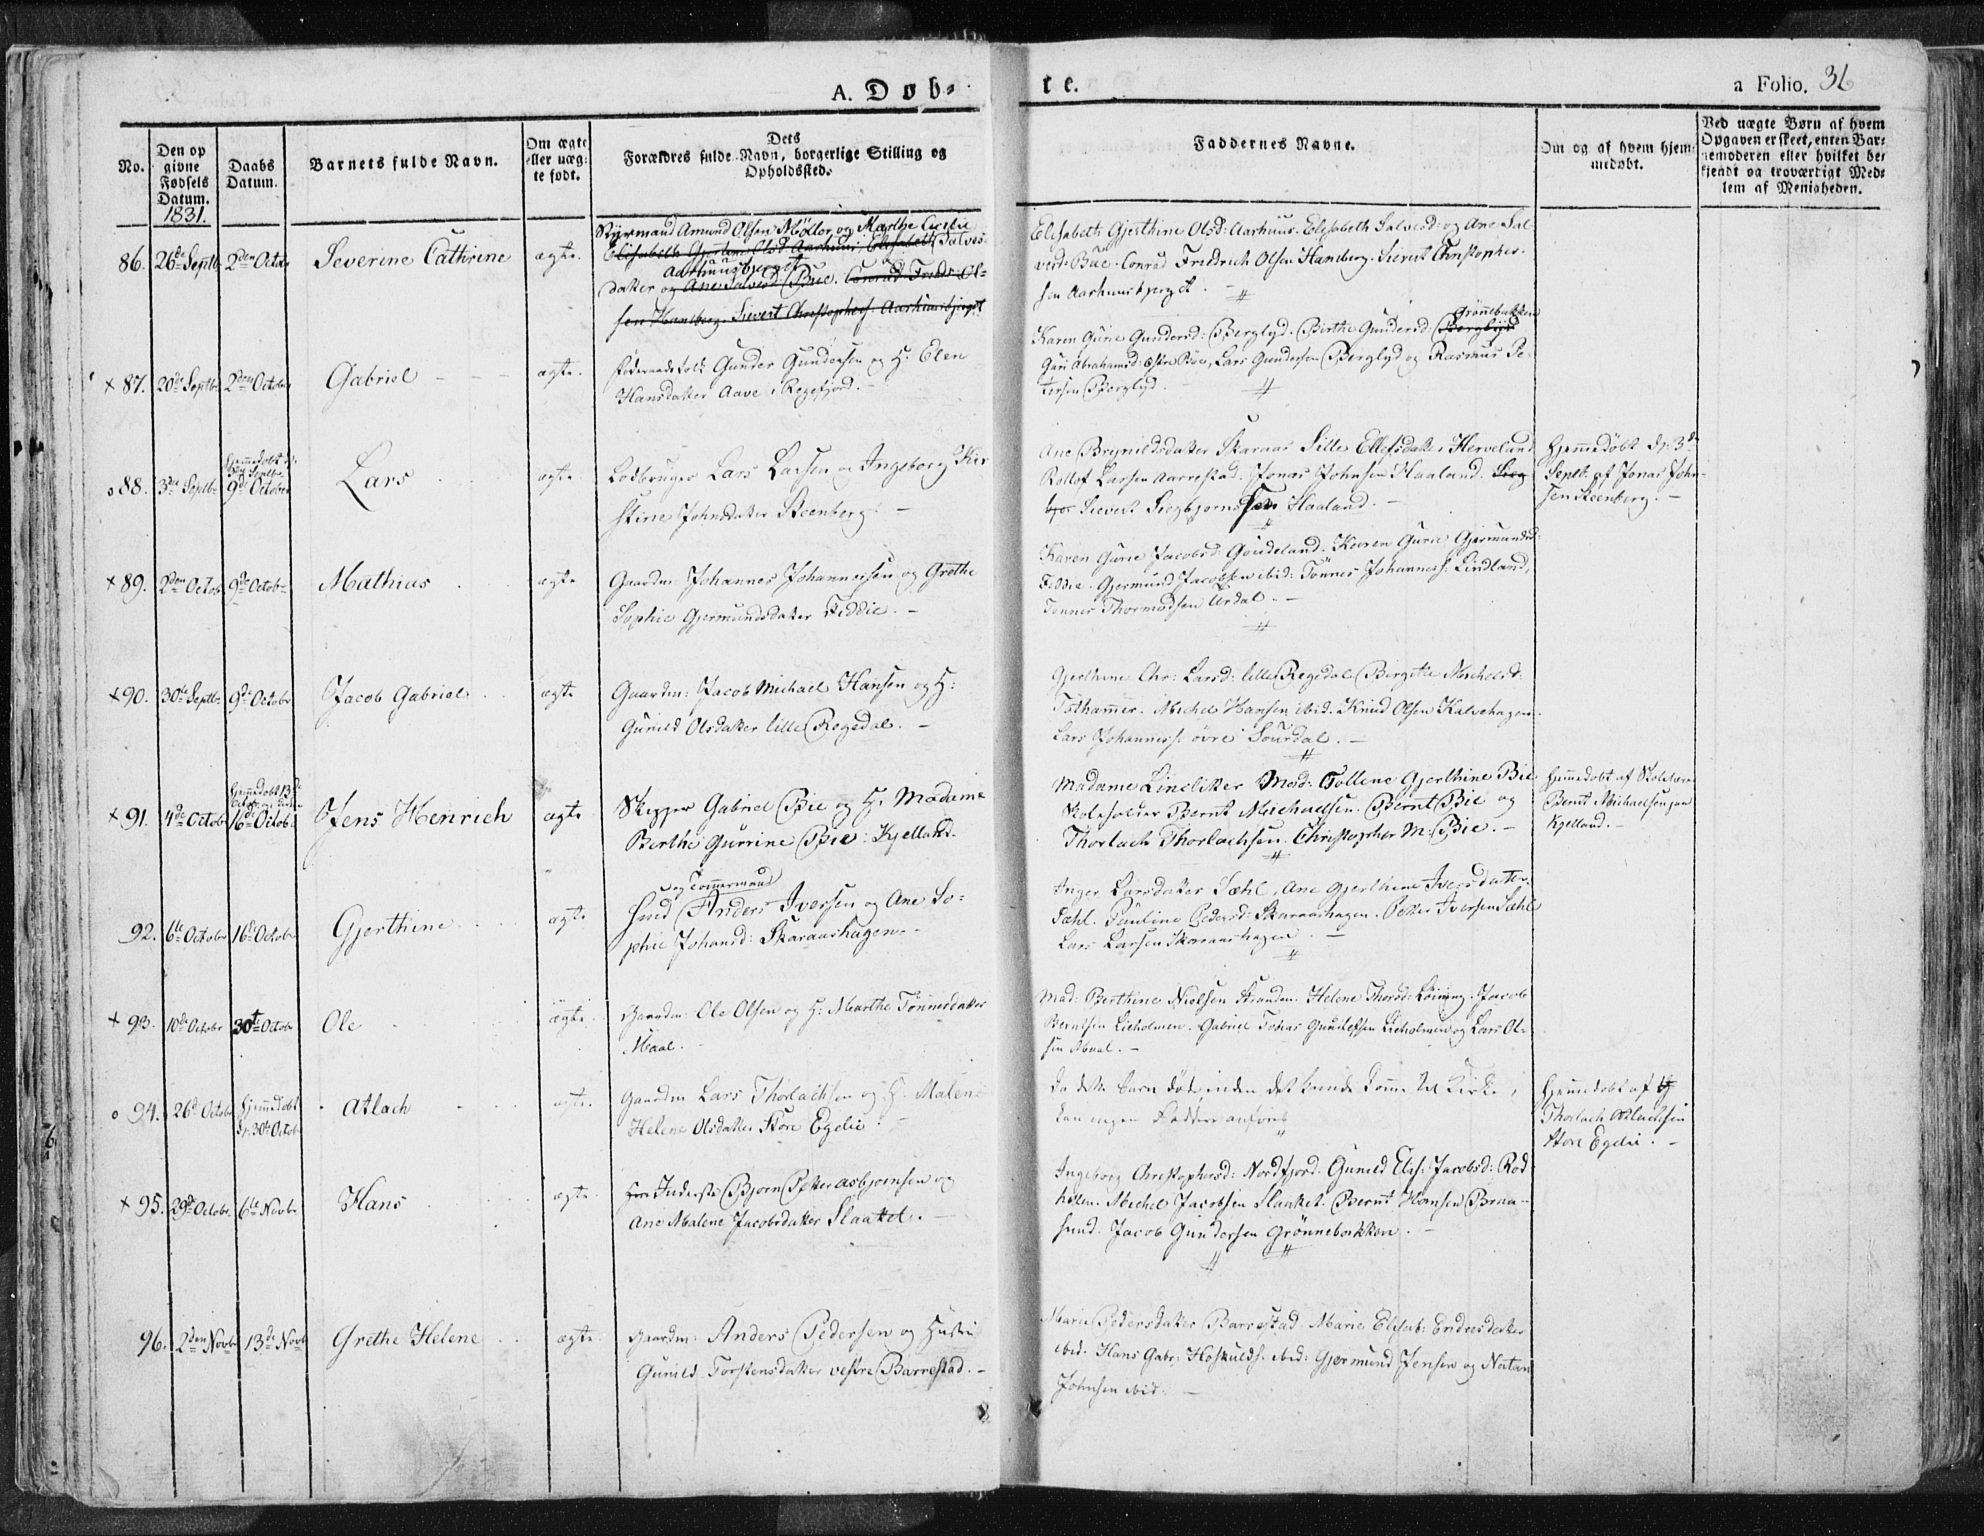 A. Døb-
te.
a Folio. 36
No.
Den op
givne
Fødsels
Datum.
1831.
Daabs
Datum.
Barnets fulde Navn.
Om ægte
eller uæg-
te født.
Dets
Forældres fulde Navn, borgerlige Stilling og
Opholdssted.
Faddernes Navne.
Om og af hvem hjem-
medøbt.
Ved uægte Børn af hvem
Opgaven er skeet, enten Bar-
nemoderen eller hvilket be-
kjendt og troværdigt Med-
lem af Menigheden.
86. 26de Septb. 2den Octob. Severine Cathrine ægte.
Styrmand Amund Olsen Møller og Marthe Cecilie
Elisabeth Gjertine Olsd Aarhuus Elisabeth Salves-
Aarhuusbjerget
datter og Ane Salvesd Bue. Conrad Fredr. Ol-
sen Hamberg. Sievert Christophers. Aarhuusbjerget
Elisabeth Gjerthine Olsd: Aarhuus. Elisabeth Salvesd: og Ane Sal-
vesd: Bue. Conrad Friedrich Olsen Hamberg. Sievert Christopher-
sen Aarhuusbjerget.
x 87. 20de Septbr 2den October Gabriel ægte.
Gunder Gundersen og H. Elen
Hansdatter Aave i Regefjord.
Grönnebakken
Karen Gurie Gundersd: Berglyd. Birthe Gundersd: Berglyd
Guri Abrahamsd: Østre Bøe, Lars Gundersen Berglyd og Rasmus Pe-
tersen Berglyd.
o 88. 3die Septbr. 9de October Lars ægte
Lodbruger Lars Larsen og Ingeborg Kir
stine Johnsdatter Steenberg. -
Ane Brynildsdatter Skaraas Sille Ellefsdatter Herveland
Rollof Larsen Aarrestad. Jonas Johnsen Haaland. Sieg
bjør Sievert Siegbjørnsen Haaland. -
Hjemmedøbt d. 3de
Septb. af Jonas John-
sen Steenberg. -
x 89. 2den Octob 9de Octob. Mathias ægte
Gaardm Johannes Johannessen og Grethe
Sophie Gjermundsdatter Fiddie. -
Karen Gurie Jacobsd: Goudeland. Karen Gurie Gjermundsd:
Fiddie. Gjermund Jacobsen ibid: Tönnes Johanness. Lindland,
Tønnes Thormodsen Urdal. -
x 90. 30te Septb. 9de Octobr Jacob Gabriel ægte
Gaardm: Jacob Michael Hansen og H:
Gunild Olsdatter lille Regedal. -
Gjerthine Chr: Larsd: lille Regedal Birgitte Michelsd:
Tothammer. Michel Hansen ibid. Knud Olsen Kalvehagen.
Lars Johanness. øvre Sourdal. -
x 91. 4de Octobr 16de Octob. Jens Henrich ægte
Skipper Gabriel Bie og H. Madame
Berthe Gurrine Bie: Kjelland.
Madame Mad: Tolline Gjerthine Bie
Skoleholder Bernt Michaelsen. Bernt Bie og
Thorlach Thorlachsen. Christopher M. Bie. -
Hjemmedøbt af Skolelærer
Bernt Michaelsen paa
Kjelland. -
92. 6te Octobr 16de Octobr Gjerthine ægte
og Tømmermand
Smed Anders Iversen og Ane So-
phie Johansd: Skaraashagen. -
Inger Larsdatter Sæhl, Ane Gjerthine Iversdatter
Sæhl. Pauline Pedersd: Skaraashagen. Petter Iversen Sæhl
Lars Larsen Skaraashagen. -
x 93. 10de Octobr 30te Octobr Ole ægte
Gaardm: Ole Olsen og H. Marthe Tönnesdatter
Maal.
Mad: Berthine Nielsen Stranden. Helene Thorsd: Löining. Jacob
Berntsen Lieholmen. Gabriel Tobias Gundersen Lieholmen og Lars Ol-
sen Maal. -
o 94. 26de Octobr Hjemmedøbt
d. 30te Octobr Atlach ægte.
Gaardm Lars Thorlachsen og H. Malene
Helene Olsdatter Store Egelie. -
Da dette barn døde, inden det kunde komme til Kirke,
kan ingen Faddere anføres
Hjemmedøbt af
Thorlach Atlachsen
Store Egelie. -
x 95. 29de Octobr. 6te Novbr Hans ægte
Inderste Bjørn Petter Asbjørnsen og
Ane Malene Jacobsdatter Slaattet. -
Ingeborg Christophersd: Nordfjord. Gunild Elis: Jacobsd: Rød-
holen. Michel Jacobsen Slaattet. Bernt Hansen Braa-
sund. Jacob Gundersen Grönnebakken. -
96. 2den Novbr 13de Novb Grethe Helene ægte
Gaardm: Anders Pedersen og Hustru
Gunild Torstensdatter vestre Barrestad. -
Marie Pedersdatter Barrestad. Marie Elisab: Endresdatter
ibid. Hans Gabr: Hoskulds. ibid: Gjermund Jensen og Natan
Johnsen ibid: -